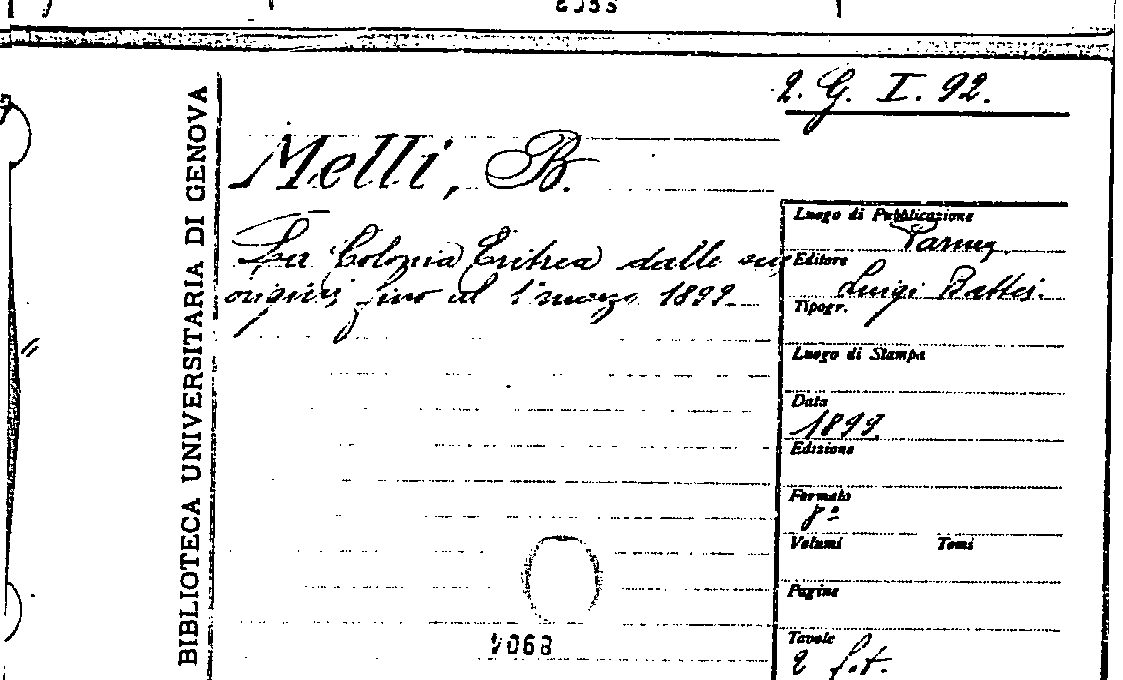 2. G. I. 92.
BIBLIOTECA UNIVERSITARIA DI GENOVA
Melli, B.
La Colonia Eritrea dalle sue
origini fino al 1º marzo 1899.
Luogo di Pubblicazione
Parma
Editore
Luigi Battei.
Tipogr.
Luogo di Stampa
Data
1899.
Edizione
Formato
8º
Volumi Tomi
Pagine
Tavole
2 f.t.